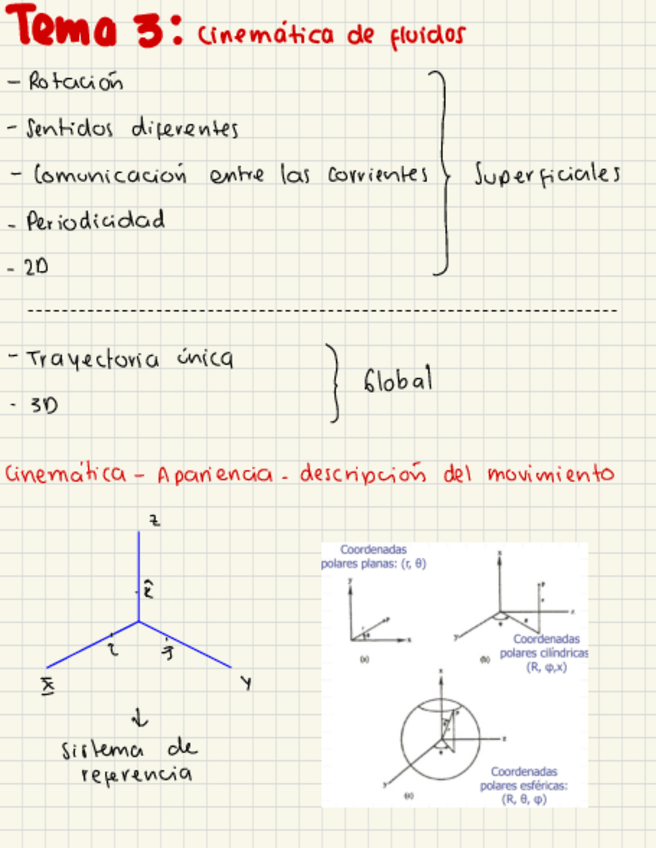 Tema 3: Cinemática de fluidos
- Rotación
- Sentidos diferentes
- Comunicación entre las corrientes
Superficiales
- Periodicidad
- 2D
- Trayectoria única
Global
- 3D
Cinemática - Apariencia - descripción del movimiento
z
k̂
x
y
↓
Sistema de
referencia
Coordenadas
polares planas: (r, θ)
y
x
(a)
Coordenadas
polares cilíndricas
(R, φ,x)
(b)
Coordenadas
polares esféricas:
(R, θ, φ)
(c)